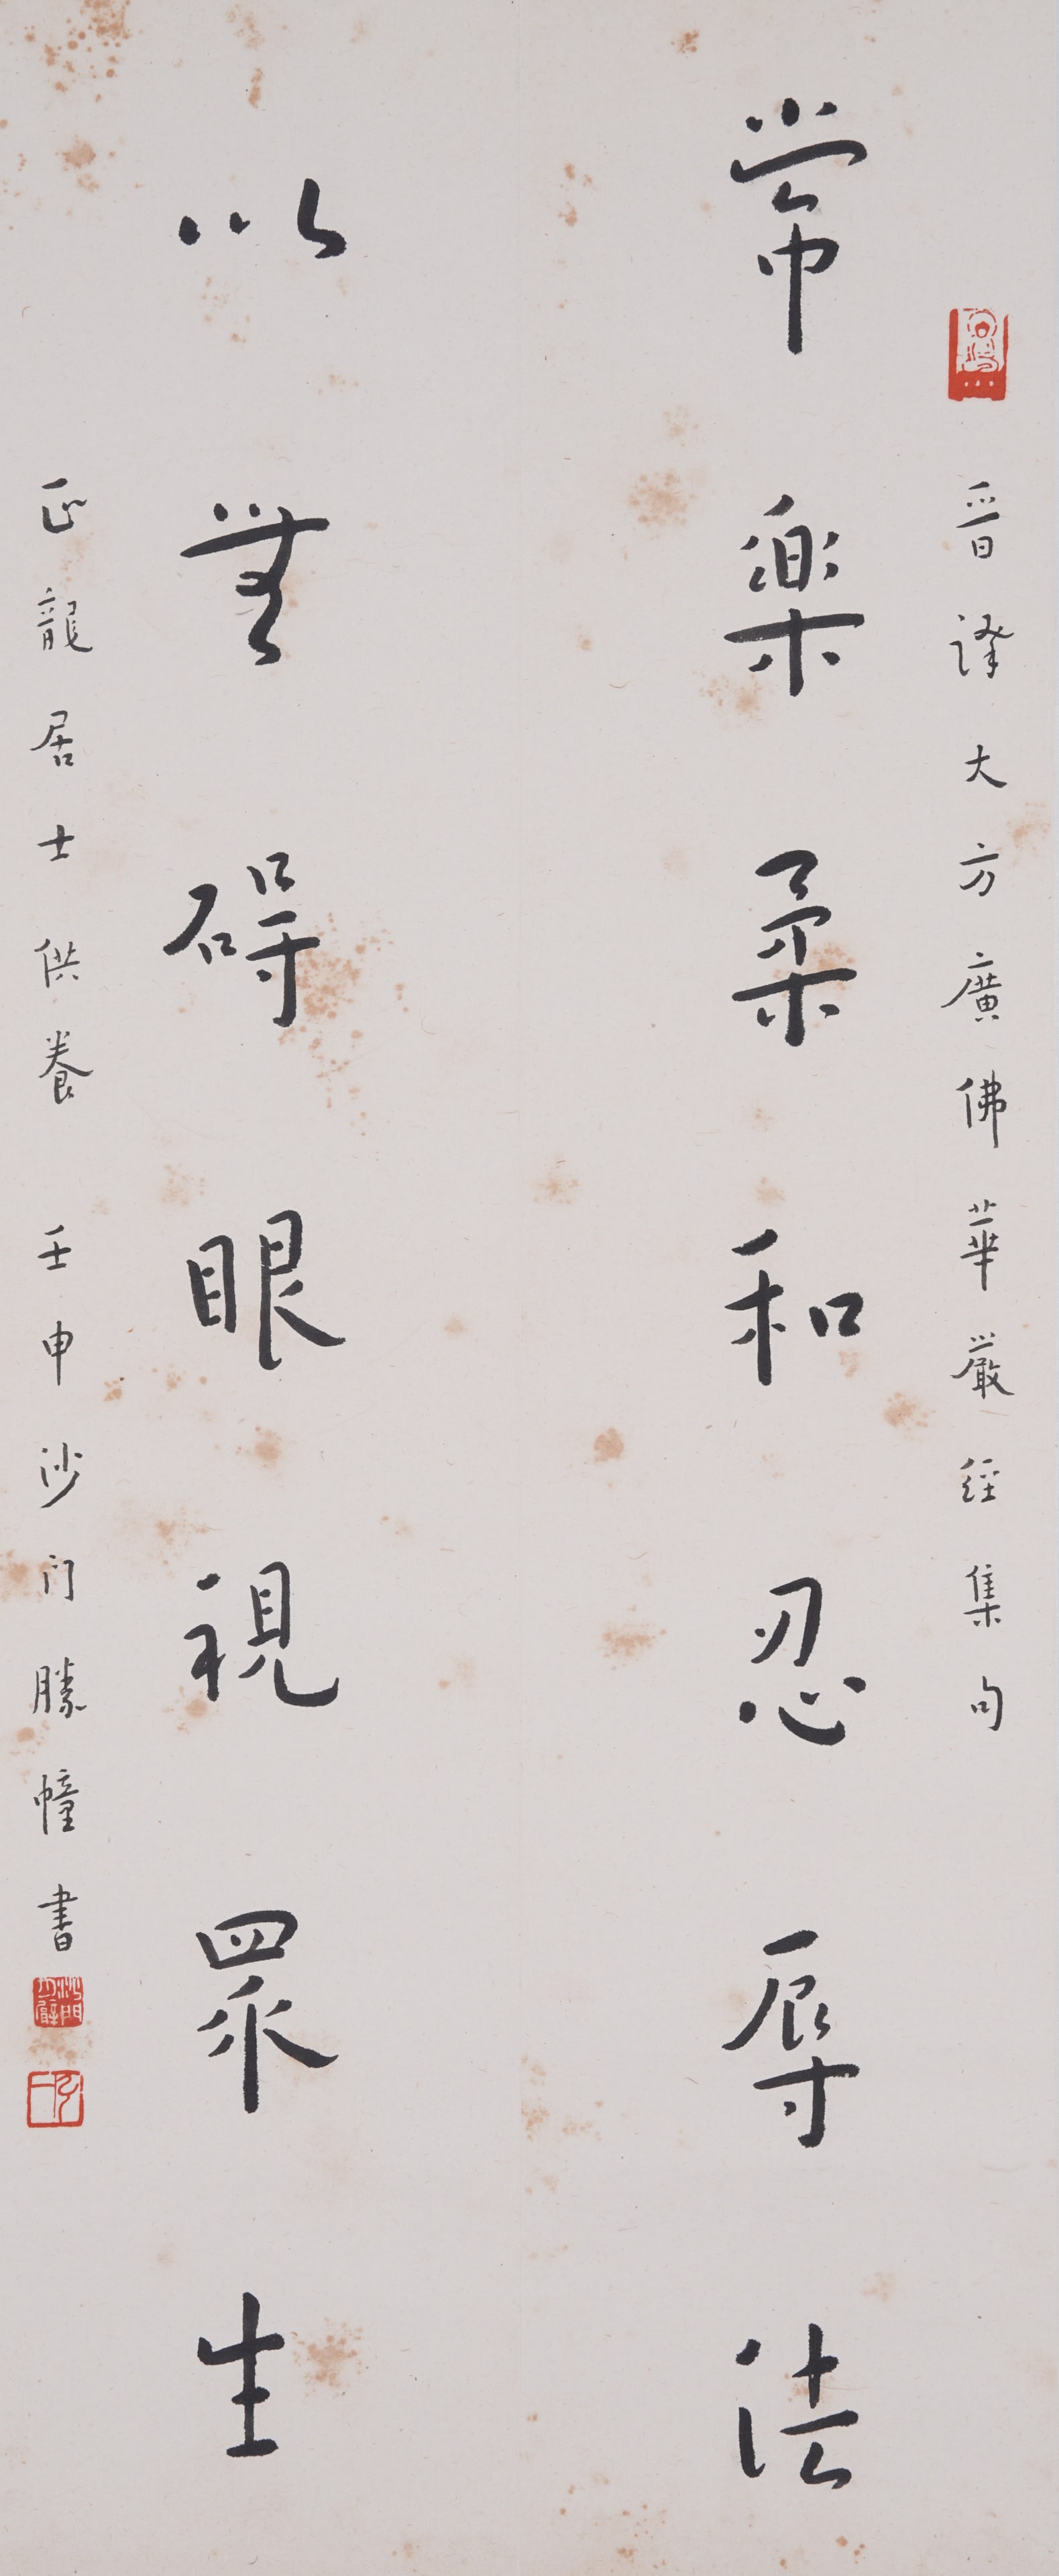 晉譯大方廣佛華嚴經集句
常樂柔和忍辱法
以無碍眼視眾生
正龍居士供養 壬申沙门勝幢書